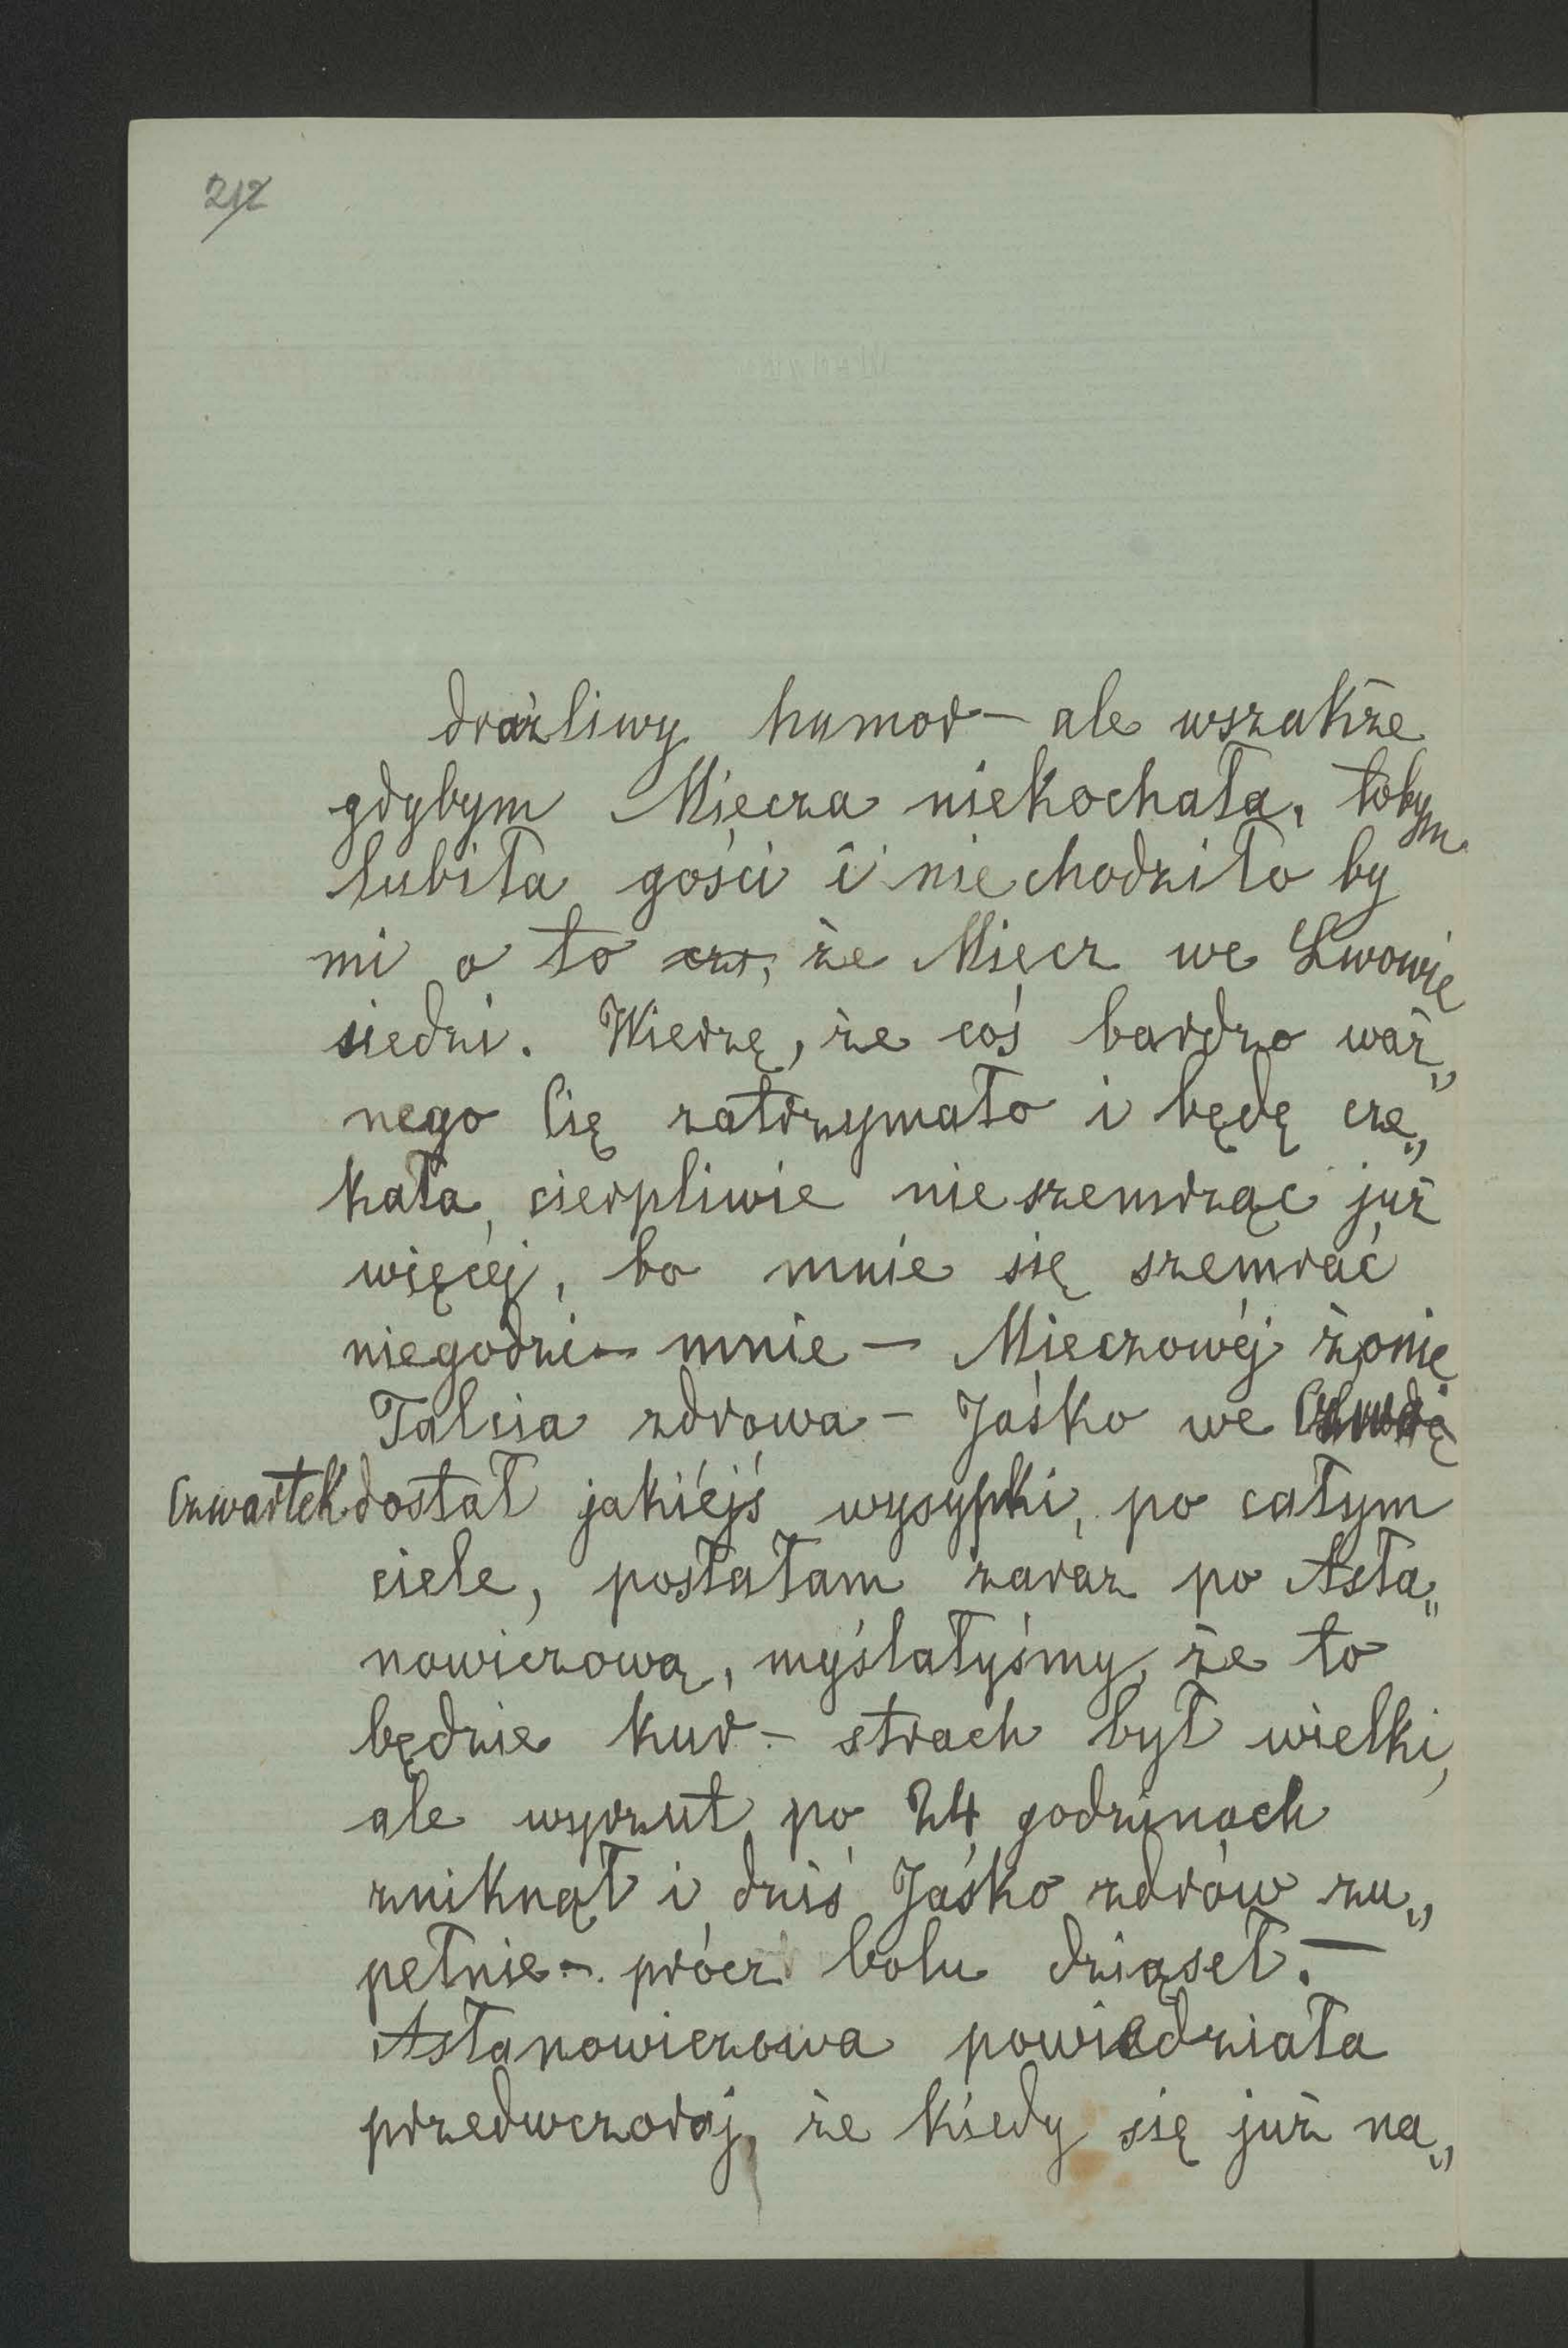 212
drażliwy humor – ale wszakże
gdybym Miecza niekochała, tobym
lubiła gości i niechodziło by
mi o to czy, że Miecz we Lwowie
siedzi. Wierzę, że coś bardzo waż„
nego Cię zatrzymało i będę cze„
kała cierpliwie nieszemrząc już
więcéj, bo mnie się szemrać
niegodzi – mnie – Mieczowéj żonie
Talcia zdrowa – Jaśko we
Czwartek dostał jakiéjś wysypki, po całym
ciele, posłałam zaraz po Asła„
nowiczową, myślałyśmy, że to
będzie kur – strach był wielki,
ale wyrzut po 24 godzinach
zniknął i dziś Jaśko zdrów zu„
pełnie – prócz bolu dziąseł. –
Asłanowiczowa powiedziała
przedwczoraj, że kiedy się już na„